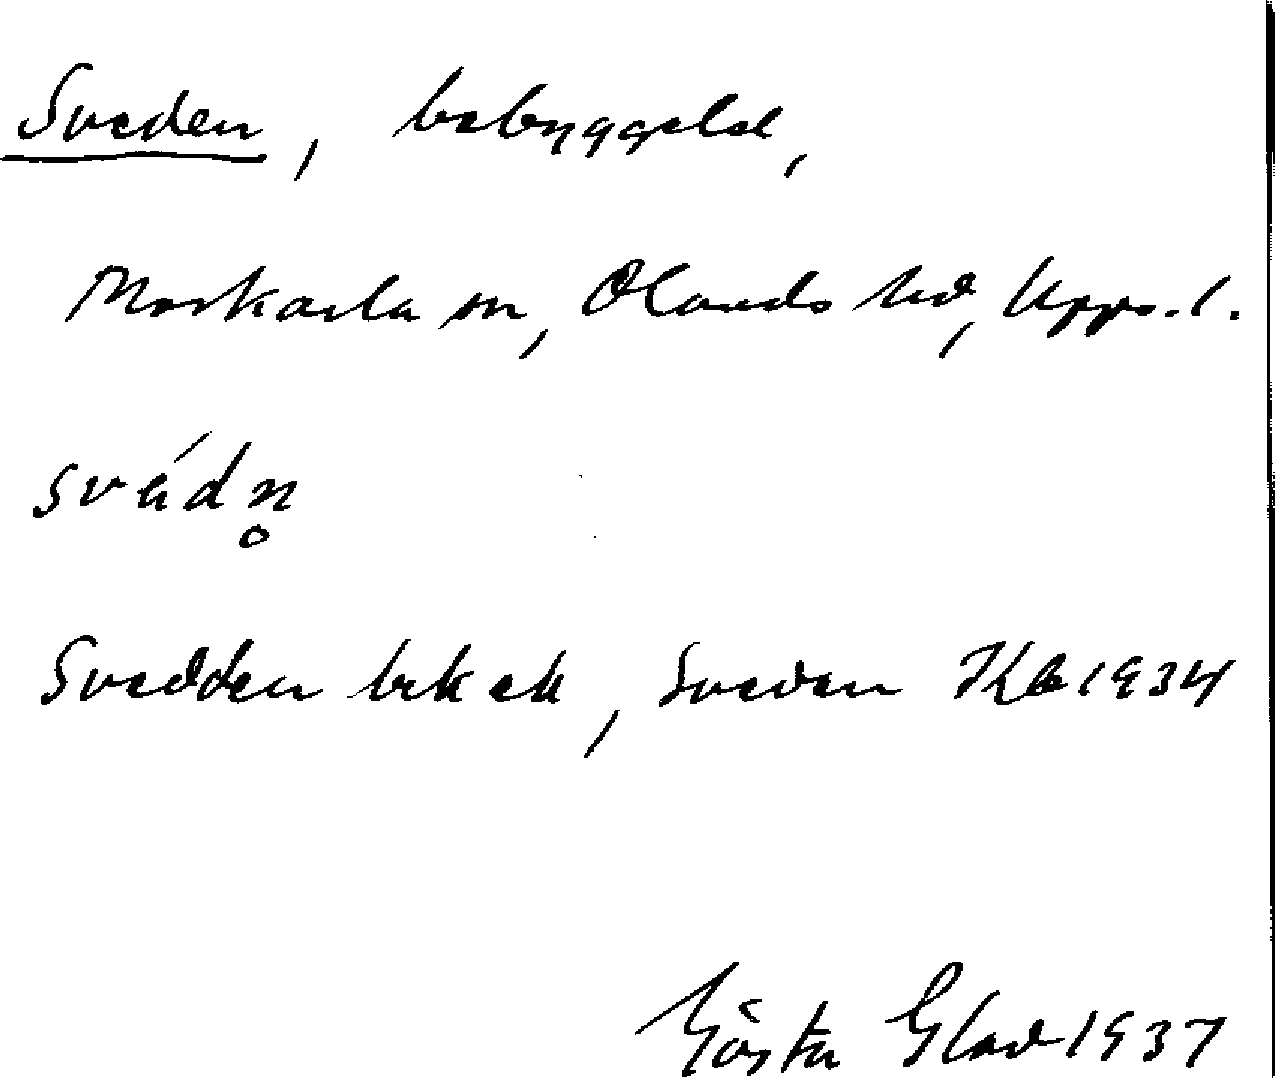 Sveden, bebyggelse,
Morkarla sn, Olands hd, Upps. l.
svédn̥
Svedden bek ek, Sveden Kb 1934
Gösta Glad 1937